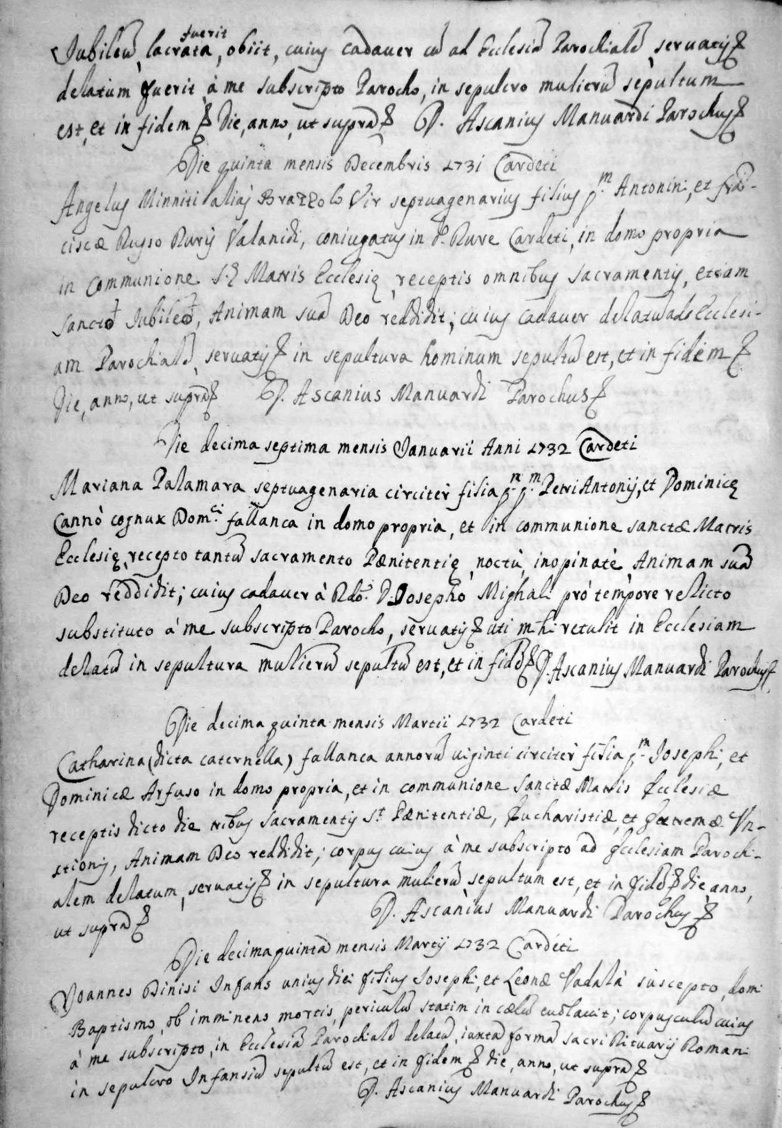 Jubileũ lacrata fuerit, obiit, cuius cadaver cũ ad Ecclesiã Parochialẽ servatys
delatum fuerit à me subscripto Parocho, in sepulcro mulierũ sepultum
est, et in fidem Die, anno, ut supra D. Ascanius Manuardi Parochus
Die quinta mensis Decembris 1731 Cardeti
Angelus Minniti alias Vir septuagenarius filius qm Antonini, et Frã-
ciscæ Russo Ruris Valanidi, coniugatus in d.º Rure Cardeti, in domo propria
in communione S. Matris Ecclesię, receptis omnibus sacramentis, etiam
sancto Jubileo, Animam suã Deo reddidit; cuius cadaver delatũ ad Ecclesi-
am Parochialẽ, servatys in sepultura hominum sepultũ est, et in fidem
Die, anno, ut supra D. Ascanius Manuardi Parochus
Die decima septima mensis Januarii Anni 1732 Cardeti
Mariana Palamara septuagenaria circiter filia qm Petri Antonij, et Dominicę
Cannò cognux Dom.ci fallanca in domo propria, et in communione sanctæ Matris
Ecclesię, recepto tantũ sacramento Pænitentię, noctù, inopinatè Animam suã
Deo reddidit; cuius cadaver à Rdo. D. Josepho Mighali prò tempore relicto
substituto à me subscripto Parocho, servatys uti mihi retulit in Ecclesiam
delatũ in sepultura mulierũ sepultũ est, et in fidẽ D. Ascanius Manuardi Parochus
Die decima quinta mensis Martii 1732 Cardeti
Catharina (dicta caternella) fallanca annorũ viginti circiter filia qm Josephi, et
Dominicæ Arfuso in domo propria, et in communione Sanctæ Matris Ecclesiæ
receptis dicto die tribus Sacramentis St Pænitentiæ, Eucharistiæ, et Extremæ Vn-
ctionis, Animam Deo reddidit; corpus cuius à me subscripto ad Ecclesiam Parochi-
alem delatum, servatys in sepultura mulierũ sepultum est, et in fidẽ die, anno,
ut supra D. Ascanius Manuardi Parochus
Die decima quinta mensis Martij 1732 Cardeti
Joannes Binisi Infans unius diei filius Josephi et Leonæ Vadalà suscepto, domi
Baptismo, ob imminens mortis periculũ statim in cælũ evolavit; corpusculũ cuius
à me subscripto, in Ecclesiã Parochialẽ delatũ, iuxta formã sacri Rituarij Romani
in sepulcro Infansiũ sepultũ est, et in fidem die, anno, ut supra
D. Ascanius Manuardi Parochus